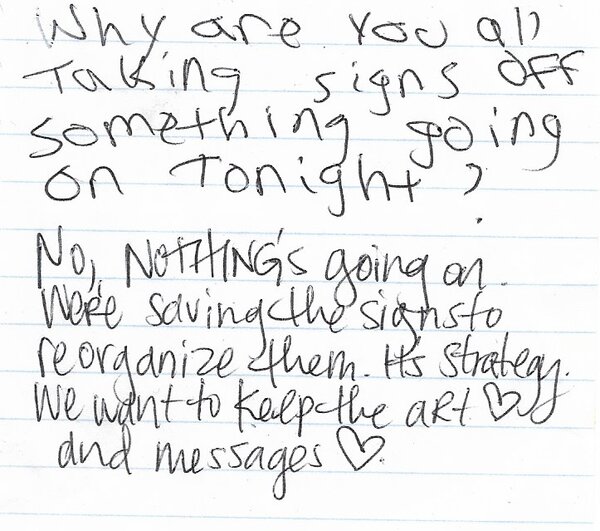 Why are you all
Taking signs off
something going
on Tonight?
No, NOTHING's going on.
We're saving the signs to
reorganize them. It's strategy.
We want to keep the art ♡
and messages ♡.